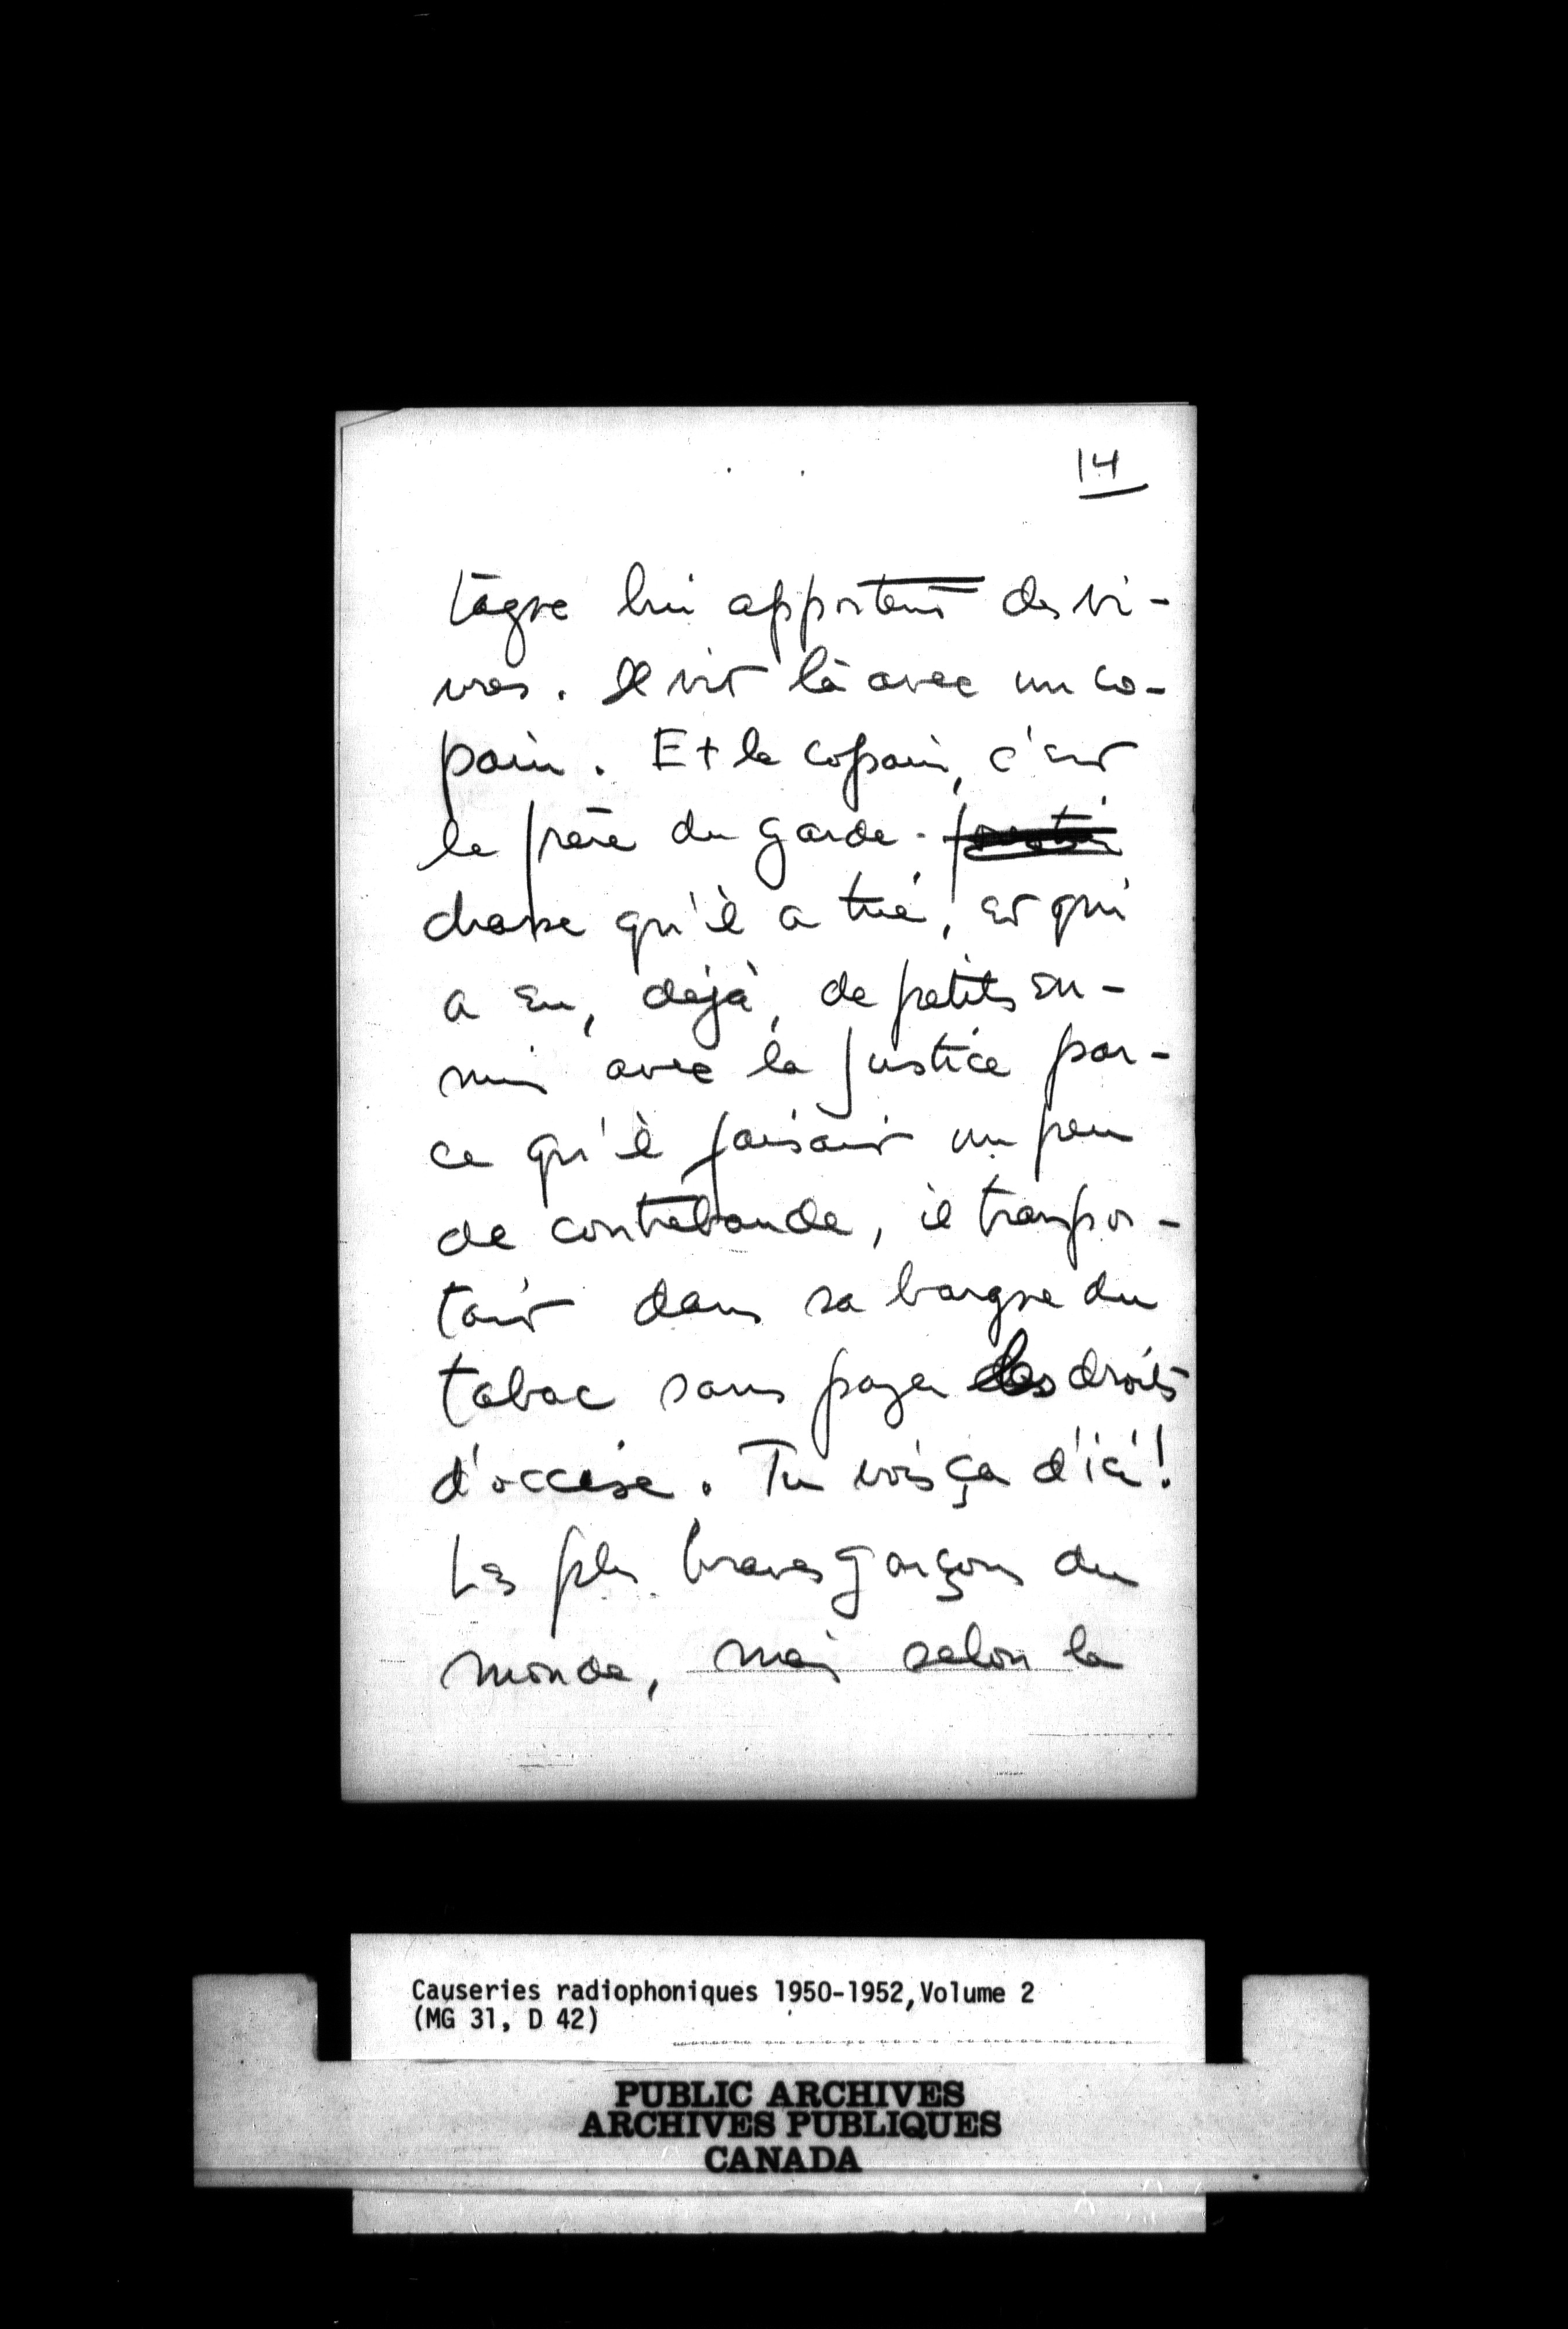 14
tagne lui apportent des vi-
vres. Il vit là avec un co-
pain. Et le copain, c'est
le frère du garde-forestier
chasse qu'il a tué, et qui
a eu, déjà, de petits en-
nuis avec la justice par-
ce qu'il faisait un peu
de contrebande, il transpor-
tait dans sa barque du
tabac sans payer les droits
d'accise. Tu vois ça d'ici!
Les plus braves garçons du
monde, mais selon la
Causeries radiophoniques 1950-1952, Volume 2
(MG 31, D 42)
PUBLIC ARCHIVES
ARCHIVES PUBLIQUES
CANADA